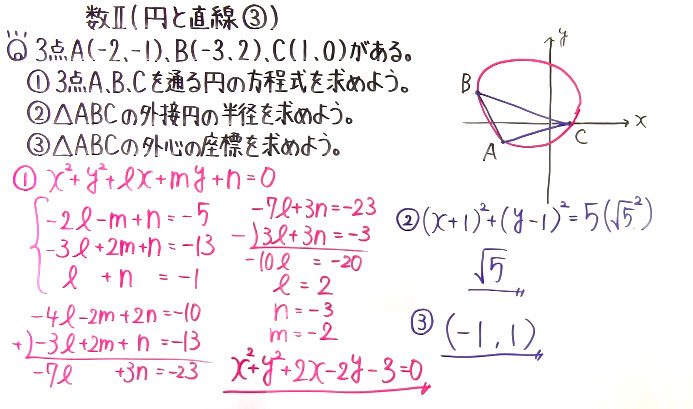 数Ⅱ(円と直線③)
Q 3点A(-2,-1)、B(-3,2)、C(1,0)がある。
①3点A、B、Cを通る円の方程式を求めよう。
②△ABCの外接円の半径を求めよう。
③△ABCの外心の座標を求めよう。
y
B
x
A
C
① x²+y²+lx+my+n=0
-2l-m+n=-5
-3l+2m+n=-13
l +n =-1
-4l-2m+2n=-10
+)-3l+2m+n=-13
-7l +3n=-23
-7l+3n=-23
-)3l+3n=-3
-10l =-20
l=2
n=-3
m=-2
x²+y²+2x-2y-3=0
②(x+1)²+(y-1)²=5(√5²)
√5
③ (-1,1)